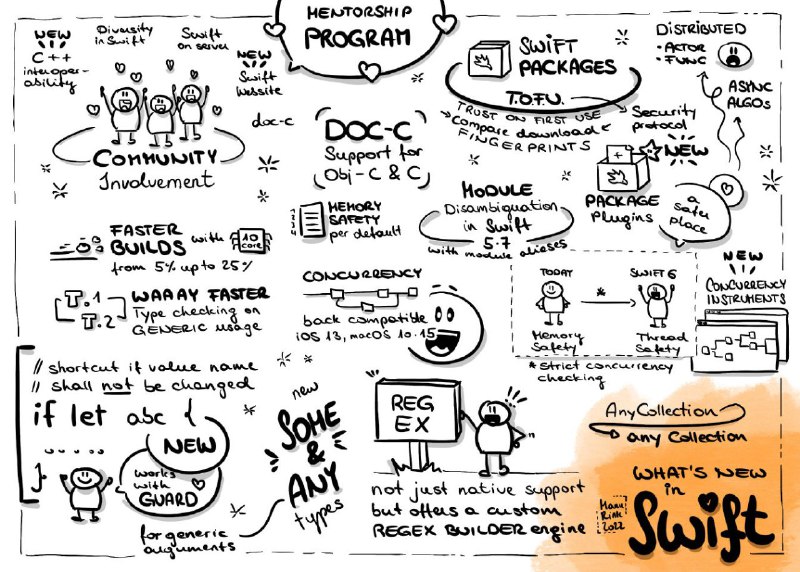 MENTORSHIP
PROGRAM
NEW
C++
interoper-
ability
Diversity
in Swift
Swift
on server
NEW
Swift
Website
doc-c
COMMUNITY
Involvement
DOC-C
Support for
Obj-C & C
SWIFT
PACKAGES
T.O.F.U.
TRUST ON FIRST USE
→ Compare download
FINGERPRINTS
Security
protocol
DISTRIBUTED
• ACTOR
• FUNC
ASYNC
ALGOs
NEW
PACKAGE
Plugins
a
safer
place
MEMORY
SAFETY
per default
MODULE
Disambiguation
in Swift
5.7
with module aliases
FASTER
BUILDS with 10 core
from 5% up to 25%
T.1
T.2
WAAAY FASTER
Type checking on
GENERIC usage
CONCURRENCY
back compatible
iOS 13, macOS 10.15
TODAY
SWIFT 6
*
Memory
Safety
Thread
Safety
* strict concurrency
checking
NEW
CONCURRENCY
INSTRUMENTS
// shortcut if value name
// shall not be changed
if let abc {
.....
}
NEW
works
with
GUARD
new
SOME
&
ANY
types
for generic
arguments
REG
EX
not just native support
but offers a custom
REGEX BUILDER engine
AnyCollection
any Collection
WHAT'S NEW
in
Swift
Manu
Rink
2022